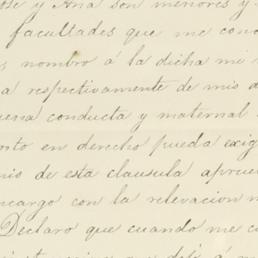 ose y Ana son menores y
facultades que me conc
s nombro á la dicha mi
a respectivamente de mis
uena conducta y maternal
orto en derecho pueda exig
nio de esta clausula aprue
ncargo con la relevacion
Declaro que cuando me c